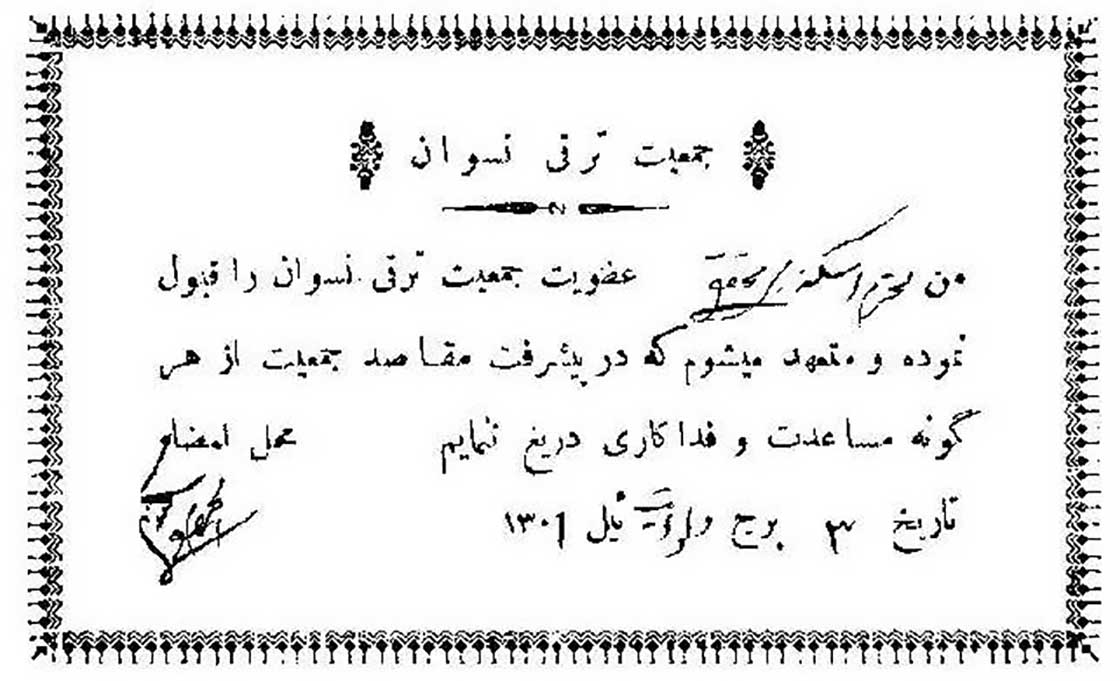 جمعیت ترقی نسوان
من محترم عضویت جمعیت ترقی نسوان را قبول
نموده و متعهد میشوم که در پیشرفت مقاصد جمعیت از هر
گونه مساعدت و فداکاری دریغ نمایم محل امضاء
تاریخ ۳ برج دلو ایت ئیل ۱۳۰۱